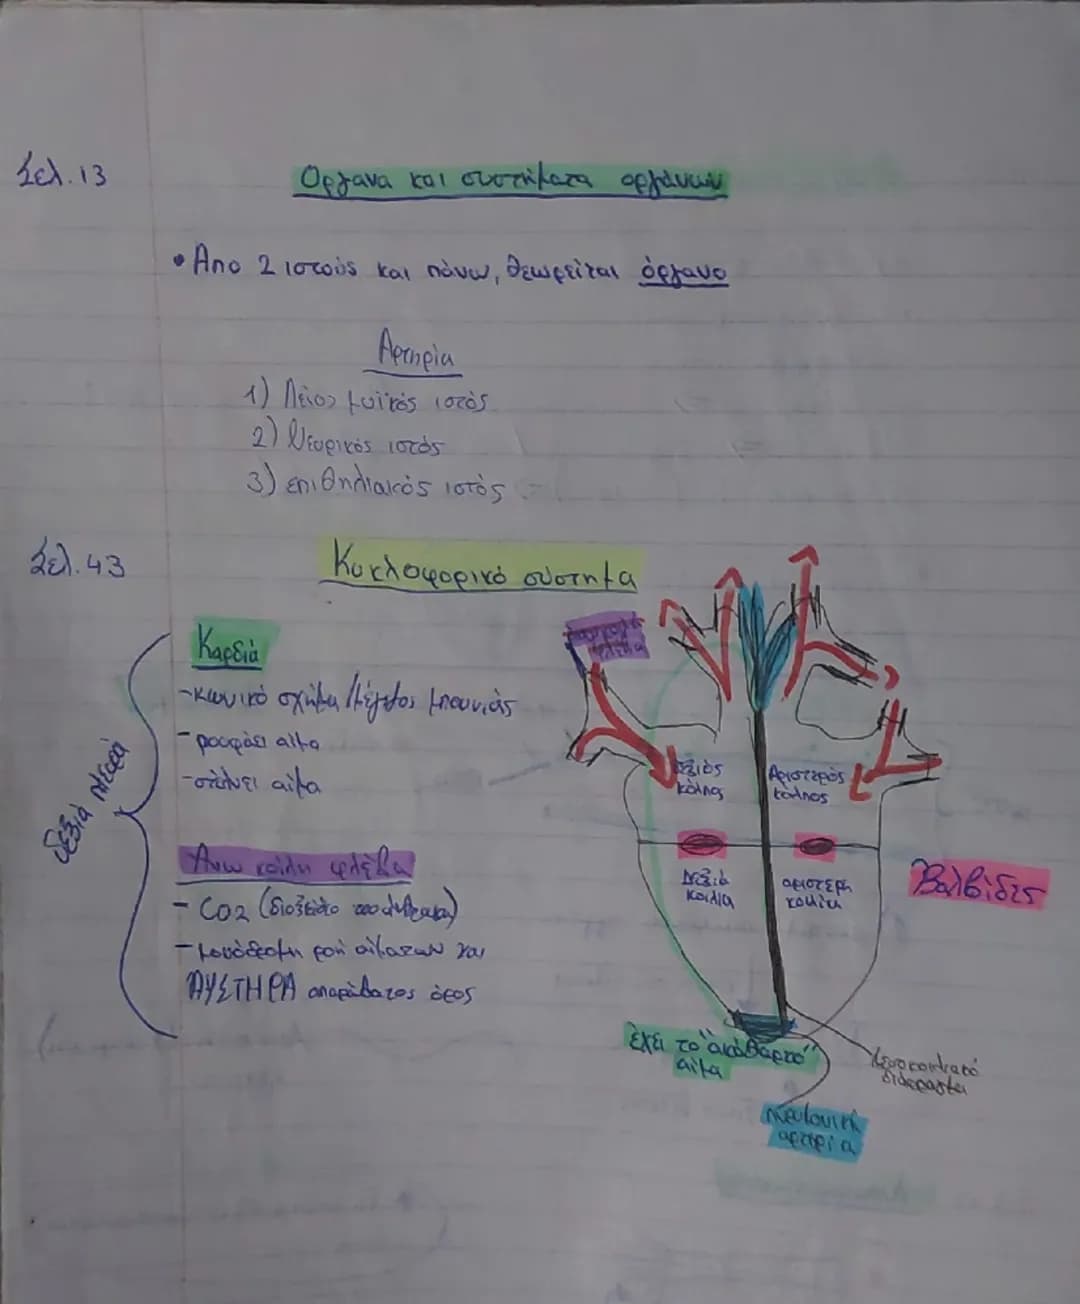 Σελ. 13
Οργανα και συστήματα οργάνων
• Απο 2 ιστούς και πάνω, θεωρείται όργανο
Αρτηρία
1) Λείος μυϊκός ιστός
2) Νευρικός ιστός
3) επιθηλιακός ιστός
Σελ. 43
Κυκλοφορικό σύστημα
Καρδιά
- κωνικό σχήμα / μέγεθος μπουνιάς
- ρουφάει αίμα
- στέλνει αίμα
δεξιά πλευρά
Ανω κοίλη φλέβα
- CO2 (διοξείδιο του άνθρακα)
- μονόδρομη ροή αίματων και
ΑΥΣΤΗΡΑ απαράβατος όρος
φλέβα
Δεξιός
κόλπος
Αριστερός
κόλπος
Δεξιά
κοιλία
αριστερή
κοιλία
Βαλβίδες
έχει το "ακάθαρτο"
αίμα
μεσοκοιλιακό
διάφραγμα
πνευμονική
αρτηρία